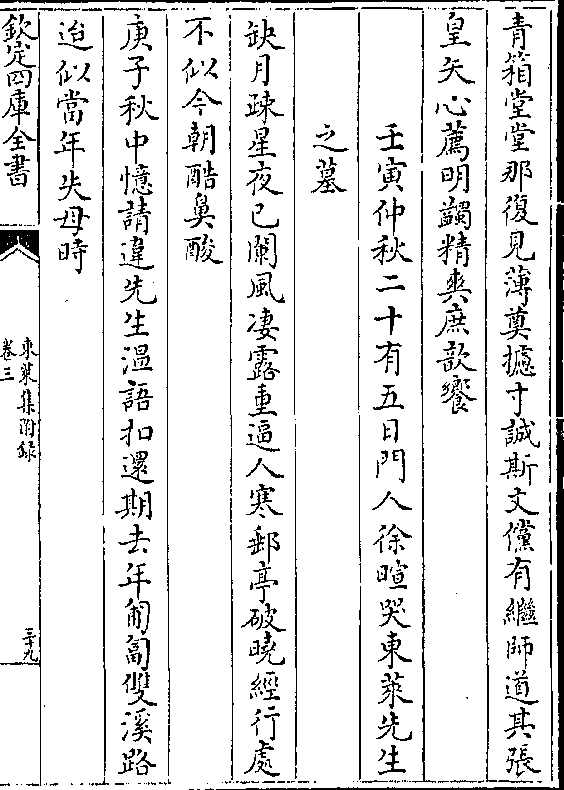 青箱堂堂那復見薄奠攄寸誠斯文儻有繼師道其張
皇矢心薦明蠲精爽庶歆饗
壬寅仲秋二十有五日門人徐暄哭東萊先生
之墓
缺月疎星夜已闌風凄露重逼人寒郵亭破曉經行處
不似今朝酷鼻酸
庚子秋中憶請違先生温語扣還期去年匍匐雙溪路
迨似當年失母時
欽定四庫全書
東萊集附録
卷三
三十九